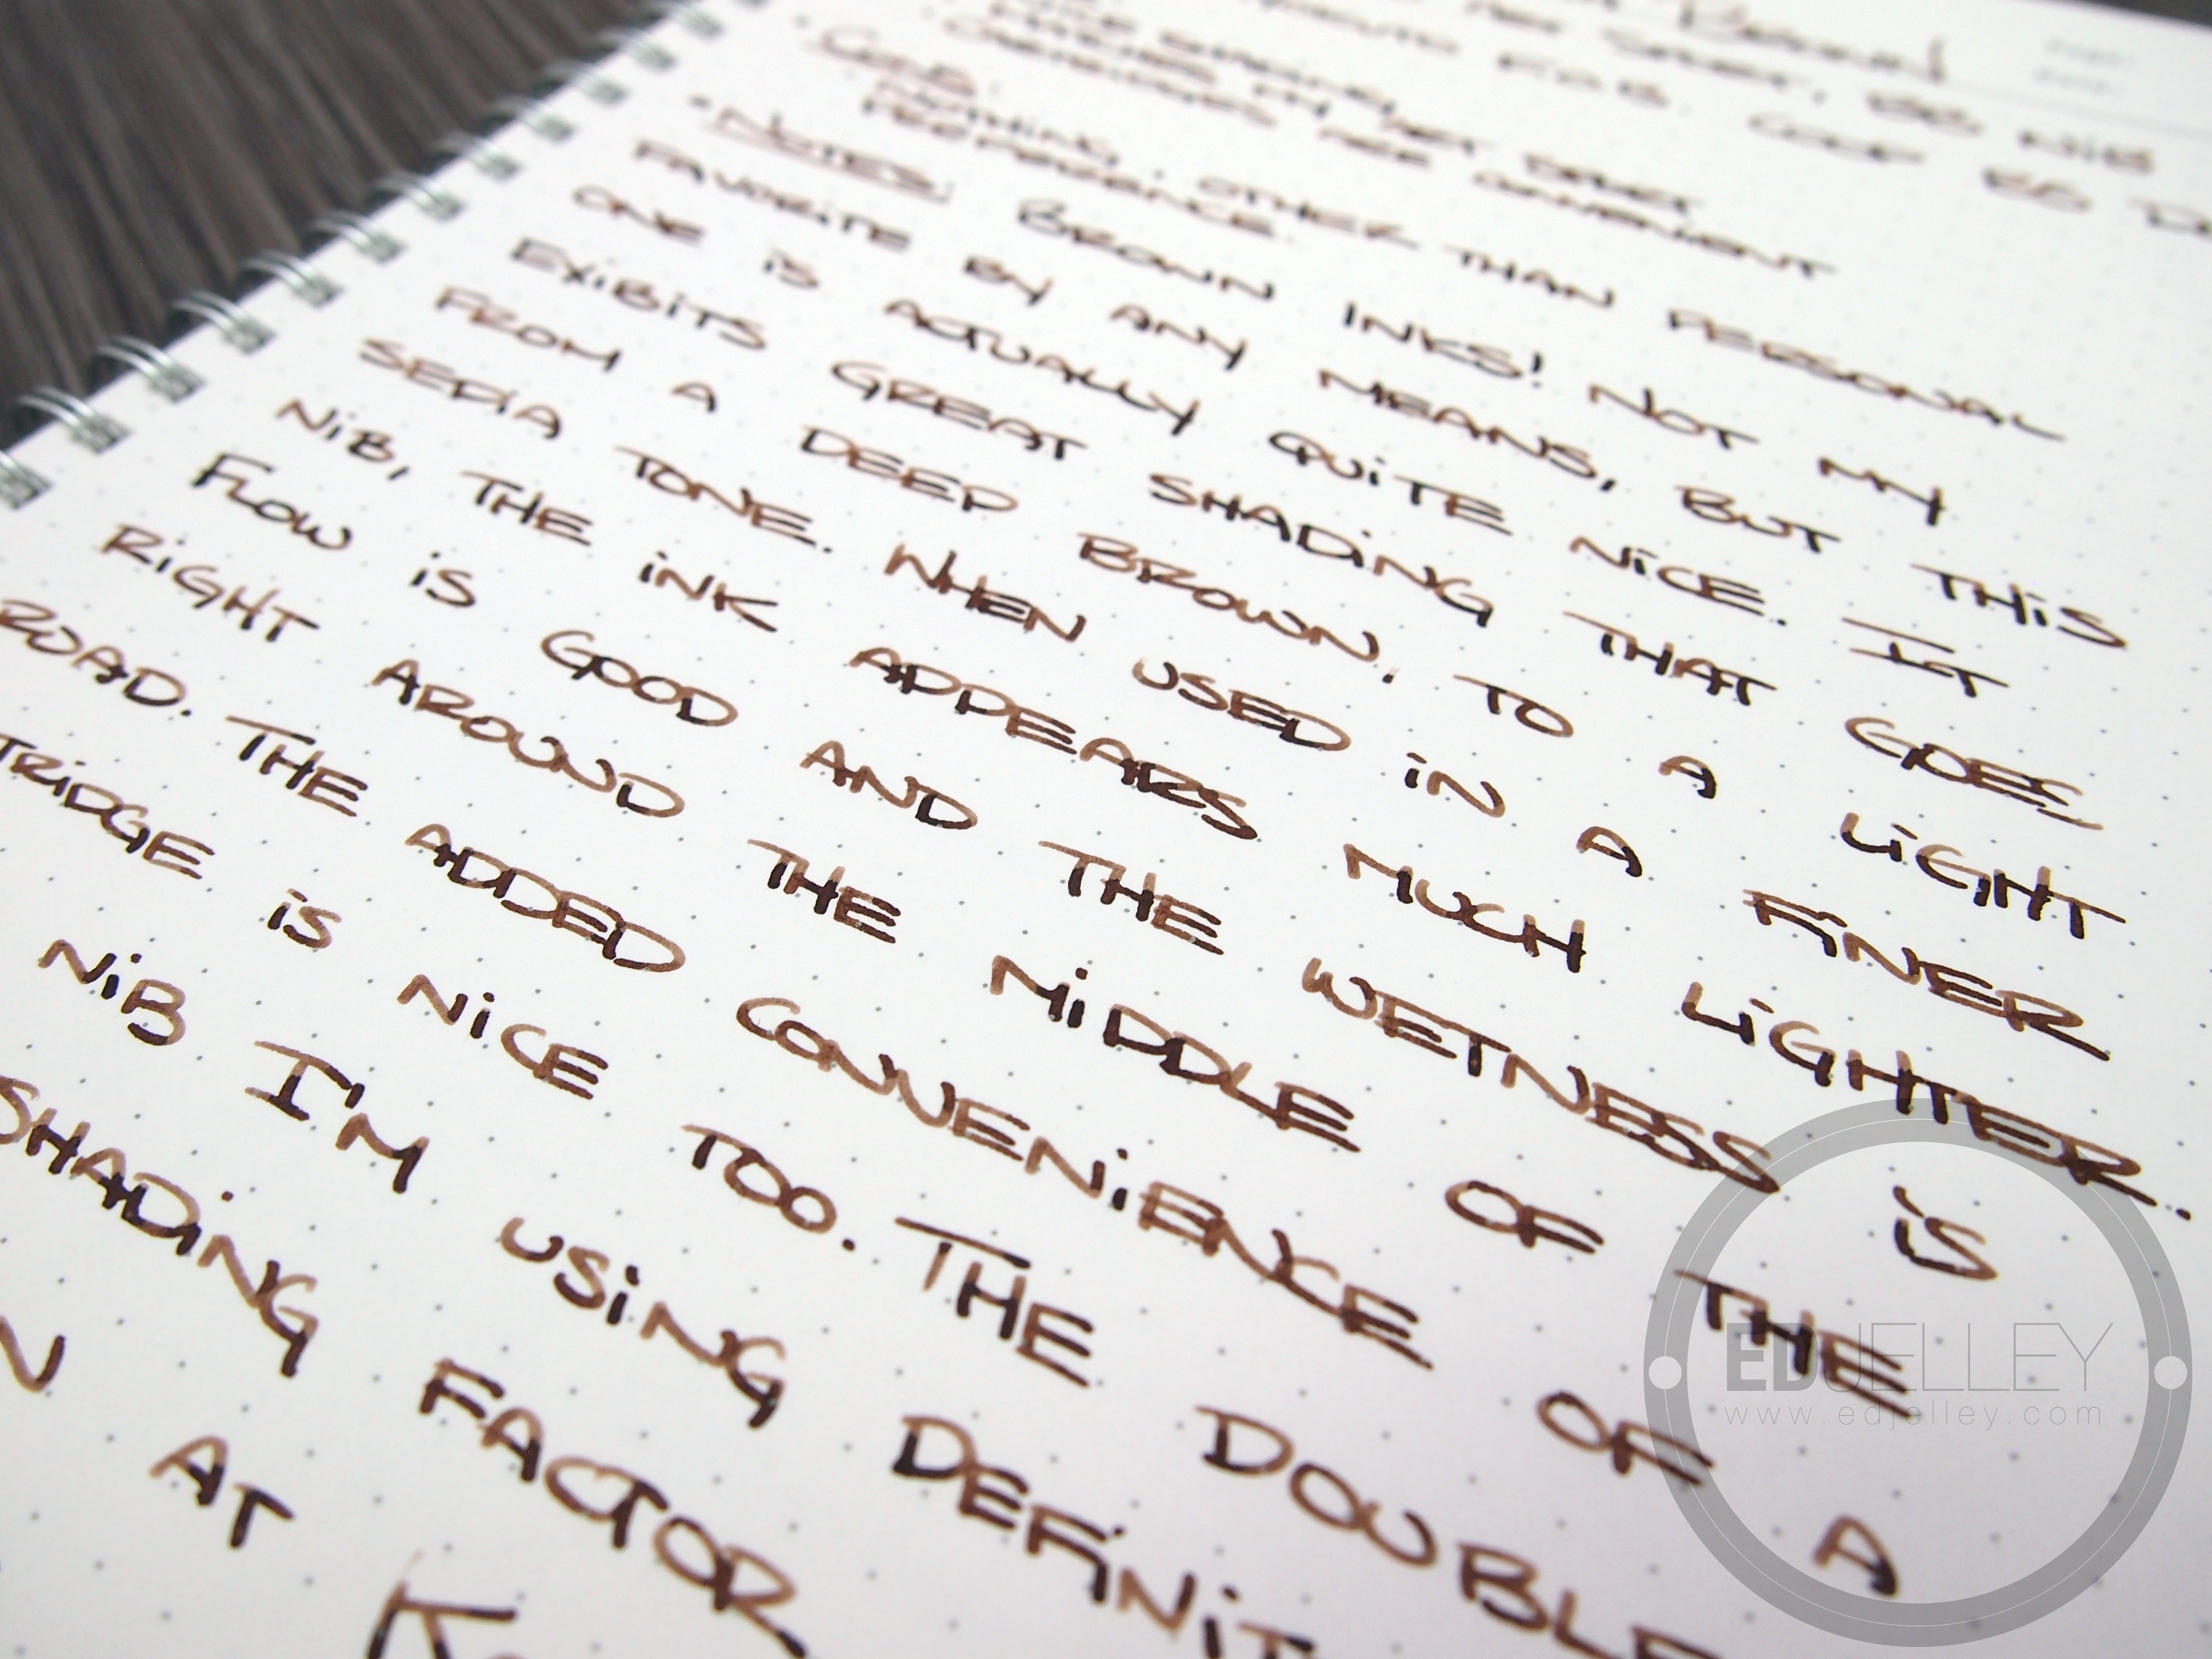 NIB
CARTRIDGES ARE CONVENIENT
CONS: NOTHING, OTHER THAN PERSONAL
PREFERENCE.
- NOTES: BROWN INKS! NOT MY
FAVORITE BY ANY MEANS, BUT THIS
ONE IS ACTUALLY QUITE NICE. IT
EXIBITS GREAT SHADING THAT GOES
FROM A DEEP BROWN, TO A LIGHT
SEPIA TONE. WHEN USED IN A FINER
NIB, THE INK APPEARS MUCH LIGHTER.
FLOW IS GOOD AND THE WETNESS IS
RIGHT AROUND THE MIDDLE OF THE
ROAD. THE ADDED CONVENIENCE OF A
TRIDGE IS NICE TOO. THE DOUBLE
NIB I'M USING DEFINIT
SHADING FACTOR
N AT K
EDJELLEY
www.edjelley.com